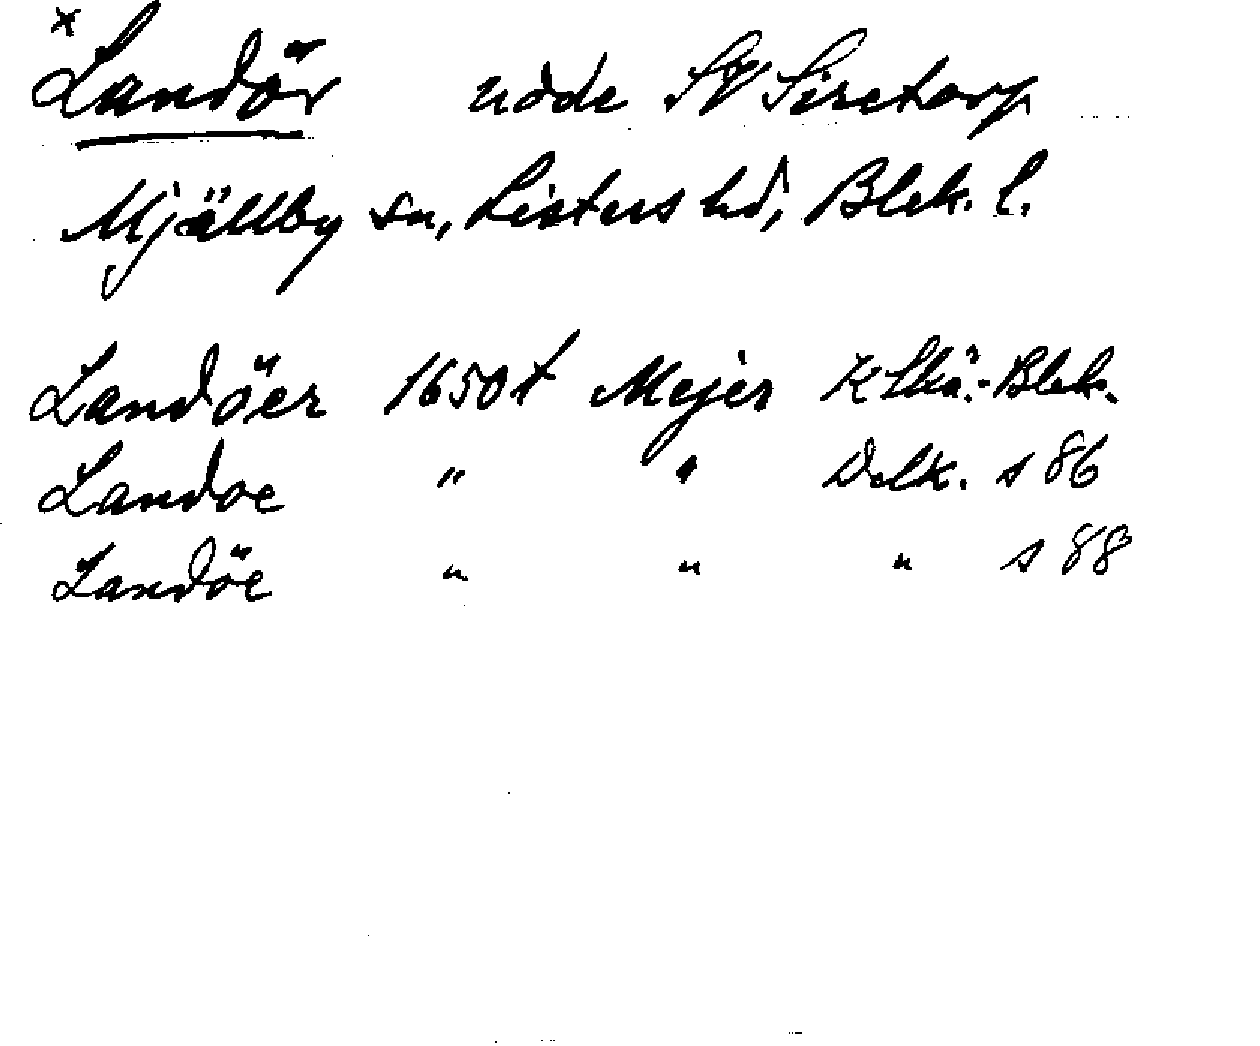 × Landör udde SV Siretorp
Mjällby sn, Listers hd, Blek. l.
Landöer 1650 t Mejer K Skå.-Blek.
Landoe " " Delk. s 86
Landöe " " " s 88